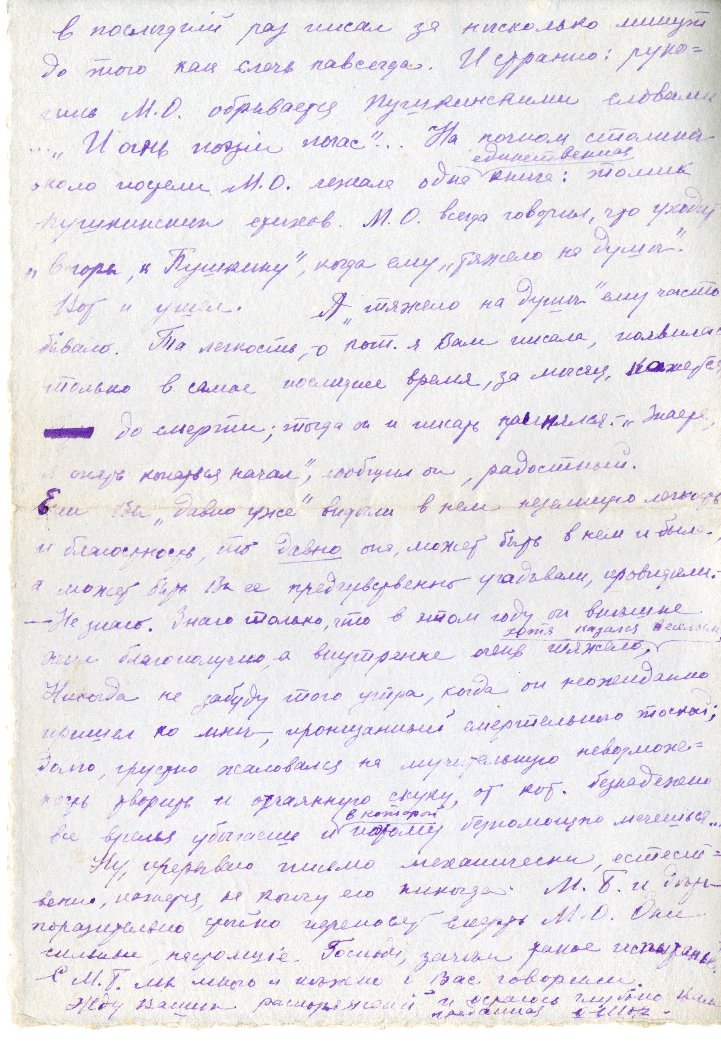 в последній раз писал за нѣсколько минут
до того как слечь навсегда. И странно: руко-
пись М.О. обрывается пушкинскими словами
..."И огнь поэзіи погас"... На ночном столике
около постели М.О. лежала одна единственная книга: томик
пушкинских стихов. М.О. всегда говорил, что уходит
"в горы, к Пушкину", когда ему "тяжело на душѣ".
Вот и ушел. А "тяжело на душѣ" ему часто
бывало. Та легкость, о кот. я Вам писала, появилась
только в самое последнее время, за мѣсяц, кажется
до смерти; тогда он и писать принялся. "Знаете,
я опять копаться начал", сообщил он, радостный.
Если Вы "давно уже" видѣли в нем неземную легкость
и благостность, то давно она, может быть в нем и была,
а может быть Вы ее предчувственно угадывали, провидѣли.
— Не знаю. Знаю только, что в этом году он внѣшне
жил благополучно, а внутренне очень тяжело, хотя казался веселым.
Никогда не забуду того утра, когда он неожиданно
пришел ко мнѣ, пронзанный смертельной тоской;
долго, грустно жаловался на мучительную невозмож-
ность творить и отчаянную скуку, от кот. безнадежно
все время убѣгаешь и в которой потому безпомощно мечешься...
Ну, прерываю письмо механически, естест-
венно, кажется, не кончу его никогда. М. Б. и
поразительно стойко переносят смерть М.О. Они
сильные, настоящіе. Господи, зачѣм такое испытанье.
С М.Б. мы много и нѣжно о Вас говорили.
Жду Ваших распоряженій и остаюсь глубоко Вам
преданная